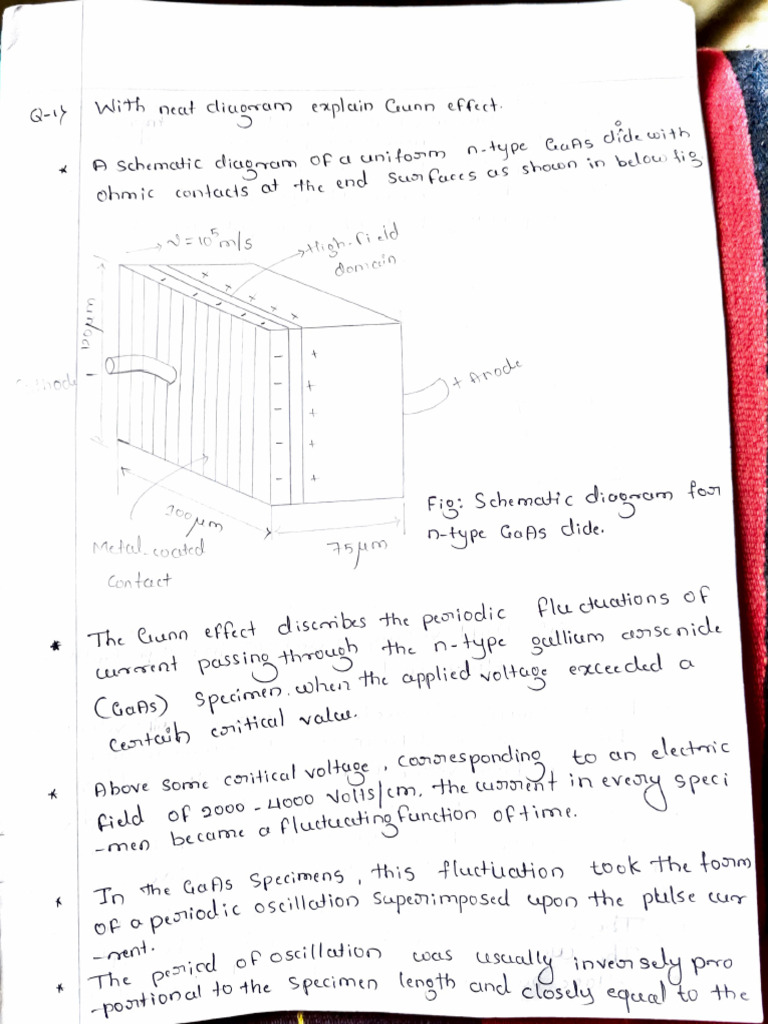 Q-1> With neat diagram explain Gunn effect.
* A schematic diagram of a uniform n-type GaAs diode with
ohmic contacts at the end surfaces as shown in below fig
→ v = 10⁵ m/s
High-field
domain
100 μm
- + Anode
200 μm
75 μm
Metal-coated
contact
Fig: Schematic diagram for
n-type GaAs dide.
* The Gunn effect discribes the periodic fluctuations of
current passing through the n-type gallium arsenide
(GaAs) specimen. when the applied voltage exceeded a
certain critical value.
* Above some critical voltage, corresponding to an electric
field of 2000 - 4000 Volts/cm, the current in every speci
-men became a fluctuating function of time.
* In the GaAs specimens, this fluctuation took the form
of a periodic oscillation superimposed upon the pulse cur
-rent.
* The period of oscillation was usually inversely pro
-portional to the specimen length and closely equal to the